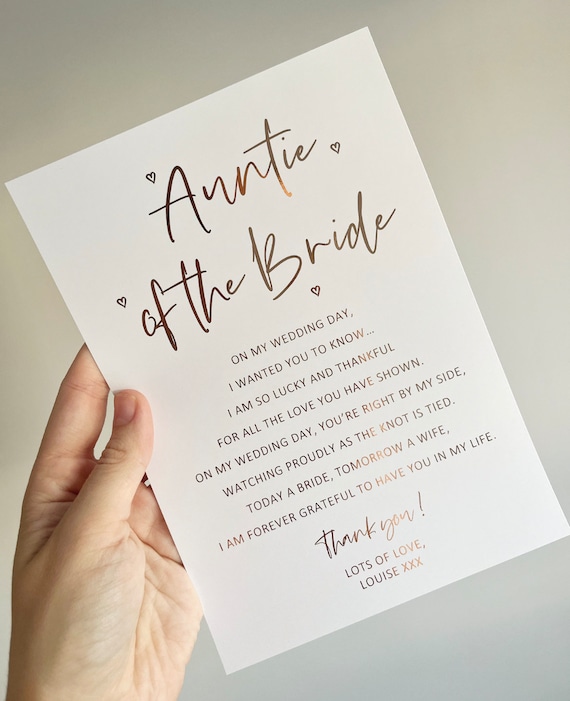 Auntie
of the Bride
ON MY WEDDING DAY,
I WANTED YOU TO KNOW...
I AM SO LUCKY AND THANKFUL
FOR ALL THE LOVE YOU HAVE SHOWN.
ON MY WEDDING DAY, YOU'RE RIGHT BY MY SIDE,
WATCHING PROUDLY AS THE KNOT IS TIED.
TODAY A BRIDE, TOMORROW A WIFE,
I AM FOREVER GRATEFUL TO HAVE YOU IN MY LIFE.
thank you!
LOTS OF LOVE,
LOUISE XXX